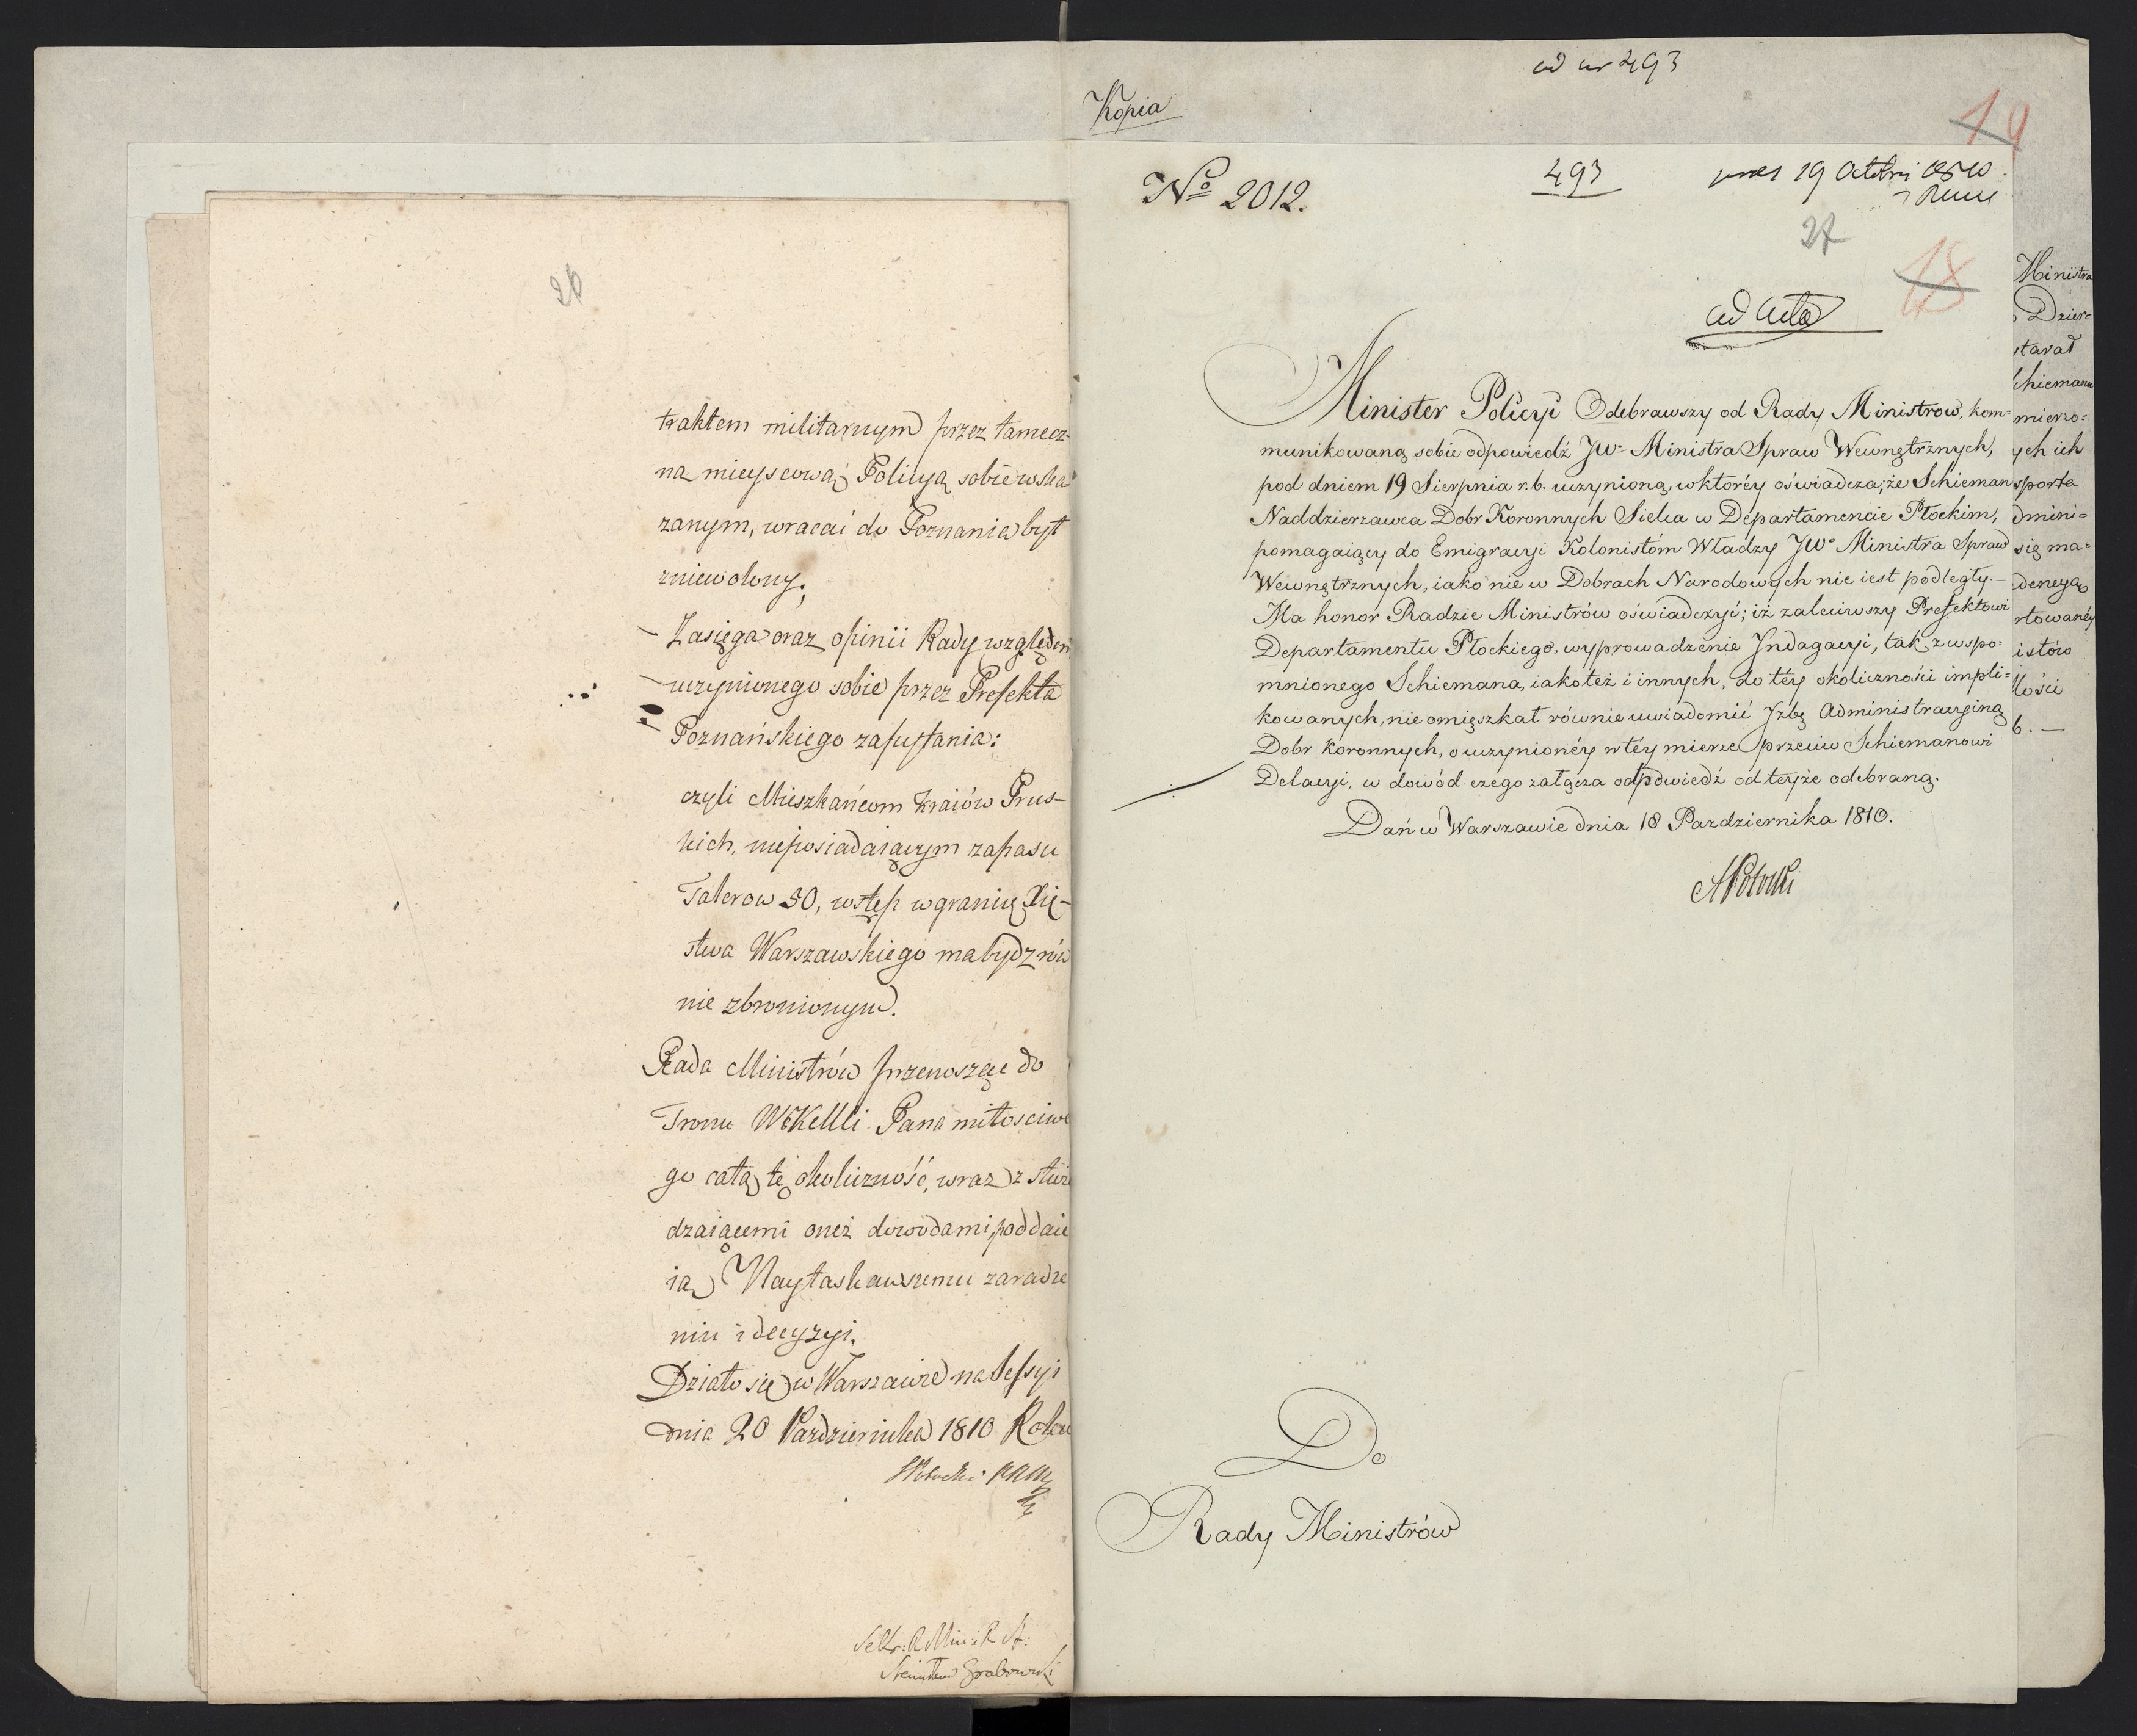 26
traktem militarnym przez tamecz-
na mieyscową Policyą sobie wska-
zanym, wracać do Poznania był
zniewolony,
Zasięga oraz opinii Rady względem
uczynionego sobie przez Prefekta
Poznańskiego zapytania:
czyli Mieszkańcom kraiów Prus-
kich, nieposiadaiącym zapasu
Talerow 50, wstęp w granicę Xię-
stwa Warszawskiego ma bydz rów
nie zbronionym.
Rada Ministrów przenosząc do
Tronu WKMci Pana miłosciwe
go całą tę okoliczność, wraz z stwier
dzaiącemi oneż dowodami, poddaie
ią Nayłaskawszemu zaradze
niu i decyzyi.
Działo się w Warszawie na Sessyi
dnia 20 Października 1810 Roku
Sekr: R Min i R St:
Stanisław Grabowski
ad nr 493
Kopia
19
No 2012.
493
pres 19 Octobri 1810
27
18
ad acta
Minister Policyi Odebrawszy od Rady Ministrow, kom-
munikowaną sobie odpowiedź JWo Ministra Spraw Wewnętrznych,
pod dniem 19 Sierpnia r. b. uczynioną, w któréy oświadcza; że Schieman
Naddzierzawca Dobr Koronnych Sielca w Departamencie Płockim,
pomagaiący do Emigracyi Kolonistóm Władzy JWo Ministra Spraw
Wewnętrznych, iako nie w Dobrach Narodowych nie iest podległy.—
Ma honor Radzie Ministrów oświadczyć; iż zaleciwszy Prefektowi
Departamentu Płockiego, wyprowadzenie Jndagacyi, tak z wspo-
mnionego Schiemana, iako też i innych, do téy okoliczności impli-
kowanych, nie omięszkał równie uwiadomić Jzbę Administracyiną
Dobr Koronnych, o uczynionéy w téy mierze przeciw Schiemanowi
Delacyi, w dowód czego załącza odpowiedź od teyże odebraną.
Dań w Warszawie dnia 18 Pazdziernika 1810.
APotocki
Do
Rady Ministrów
Ministra
Dzier-
starał
chiemann
mierzo-
ych ich
sporta
dmini-
się ma-
rtowanéy
istów
łości
b. —